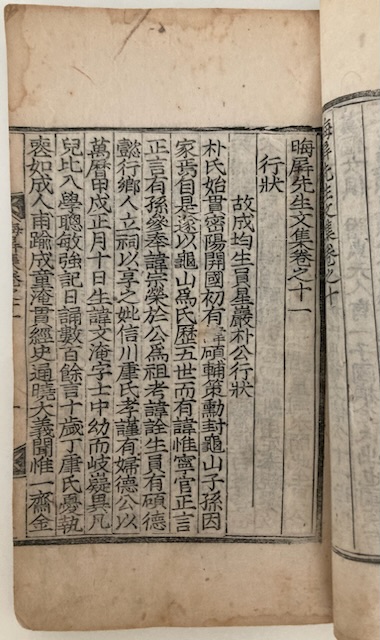 晦屛先生文集卷之十
晦屛先生文集卷之十一
行狀
故成均生員星巖朴公行狀
朴氏始貫密陽開國初有諱碩輔策勳封龜山子孫因
家焉自是遂以龜山爲氏歷五世而有諱惟寧官正言
正言有孫參奉諱榮於公爲祖考諱詮生員有碩德
懿行鄕人立祠以享之妣信川康氏孝謹有婦德公以
萬曆甲戌正月十日生諱文淹字士中幼而岐嶷異凡
兒比入學聰敏強記日誦數百餘言十歲丁康氏憂執
喪如成人甫踰成童淹貫經史通曉大義聞惟一齋金